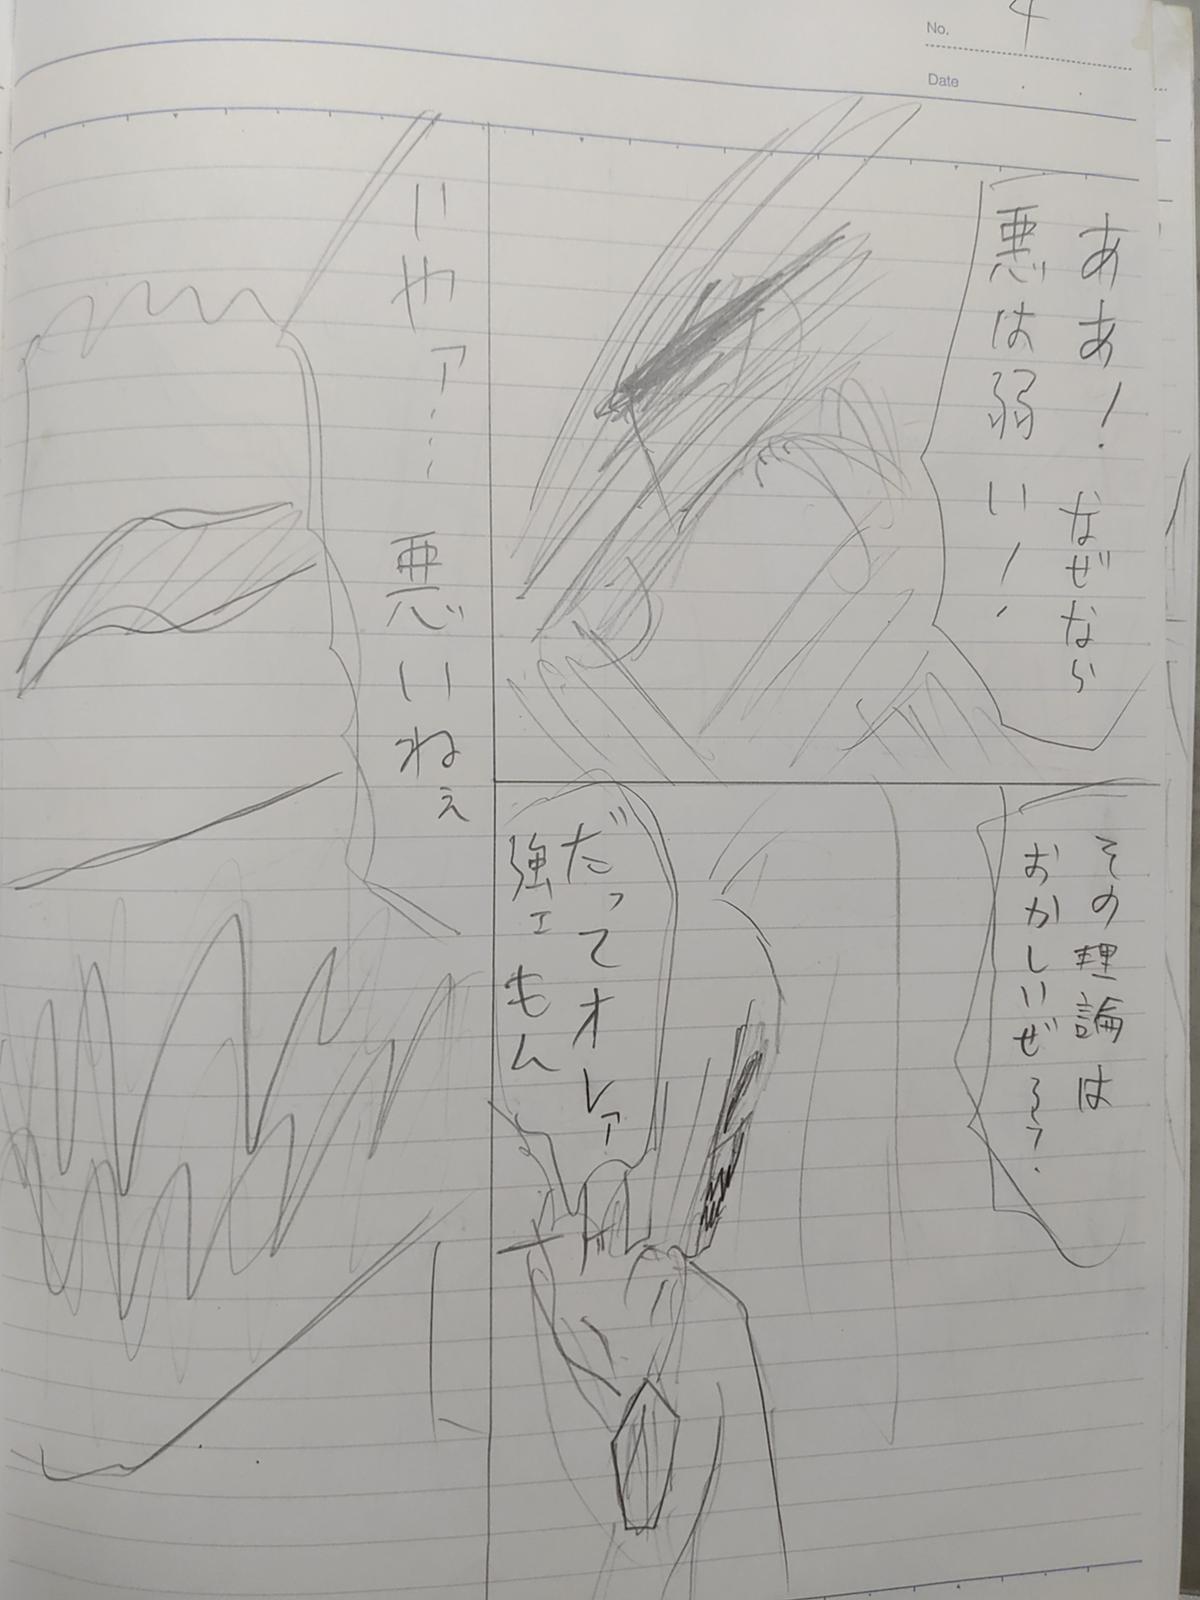 No. 4
Date
ああ！なぜなら
悪は弱い！
その理論は
おかしいぜ
だってオレァ
強エもん
いやァ…
悪いねぇ